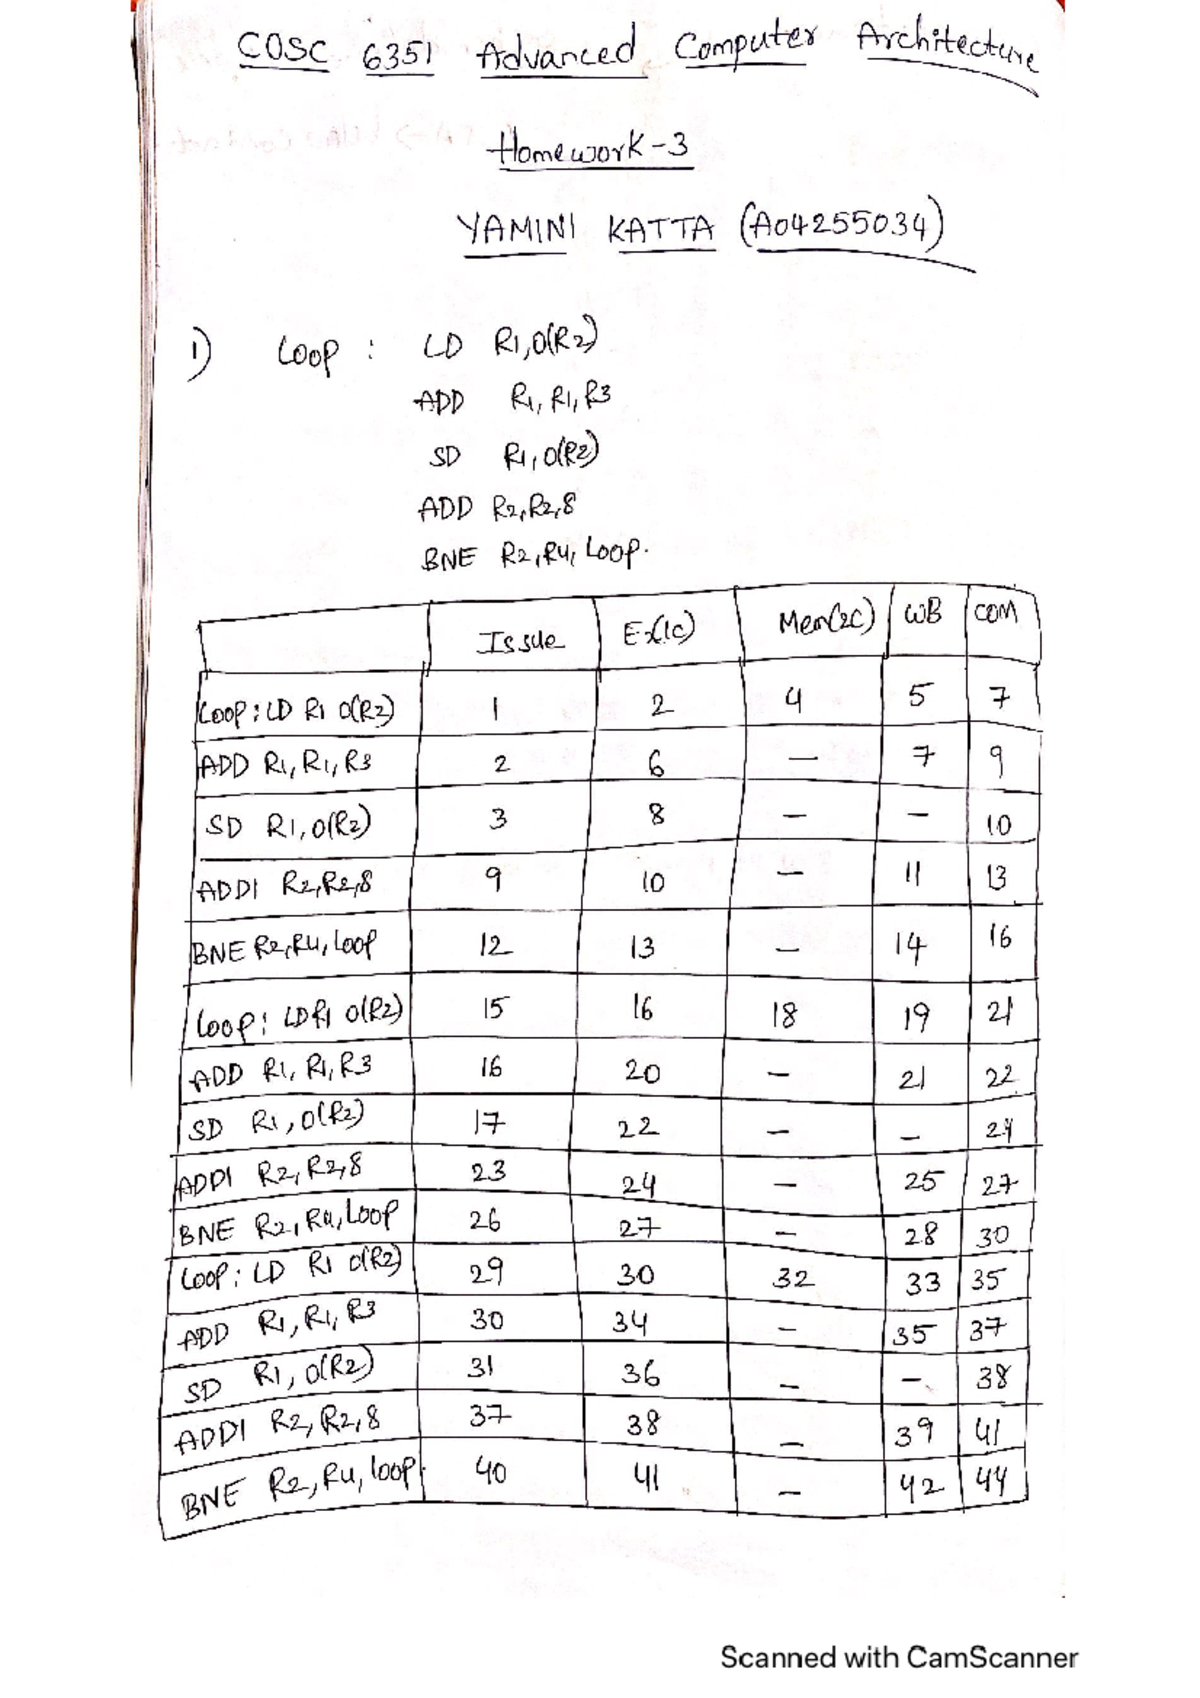 COSC 6351 Advanced Computer Architecture
Homework-3
YAMINI KATTA (A04255034)
1) Loop : LD R1,0(R2)
ADD R1, R1, R3
SD R1, 0(R2)
ADD R2,R2,8
BNE R2,R4, Loop.
Issue Ex(1c) Mem(2c) WB COM
Loop: LD R1 0(R2) 1 2 4 5 7
ADD R1, R1, R3 2 6 — 7 9
SD R1, 0(R2) 3 8 — — 10
ADDI R2,R2,8 9 10 — 11 13
BNE R2,R4, Loop 12 13 — 14 16
Loop: LD R1 0(R2) 15 16 18 19 21
ADD R1, R1, R3 16 20 — 21 22
SD R1, 0(R2) 17 22 — — 24
ADDI R2, R2,8 23 24 — 25 27
BNE R2, R4, Loop 26 27 — 28 30
Loop: LD R1 0(R2) 29 30 32 33 35
ADD R1, R1, R3 30 34 — 35 37
SD R1, 0(R2) 31 36 — — 38
ADDI R2, R2,8 37 38 — 39 41
BNE R2, R4, loop 40 41 — 42 44
Scanned with CamScanner